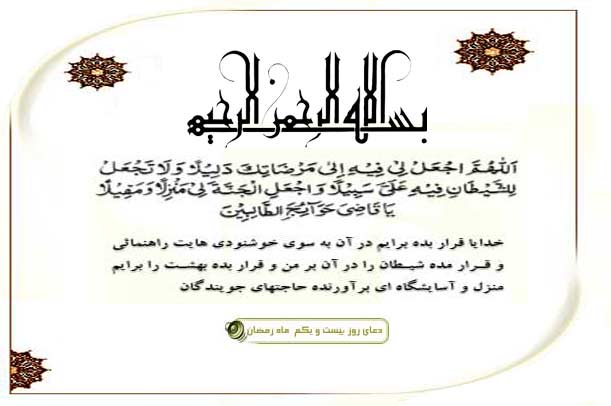 بسم الله الرحمن الرحیم
اَللّهُمَّ اجْعَلْ لی فیهِ اِلی مَرْضاتِكَ دَلیلًا وَلا تَجْعَلْ
لِلشَّیْطانِ فیهِ عَلَیَّ سَبیلًا وَاجْعَلِ الْجَنَّةَ لی مَنْزِلًا وَمَقیلًا
یا قاضِیَ حَوآئِجِ الطّالِبینَ
خدایا قرار بده برایم در آن به سوی خوشنودی هایت راهنمائی
و قرار مده شیطان را در آن بر من و قرار بده بهشت را برایم
منزل و آسایشگاه ای برآورنده حاجتهای جویندگان
دعای روز بیست و یکم ماه رمضان